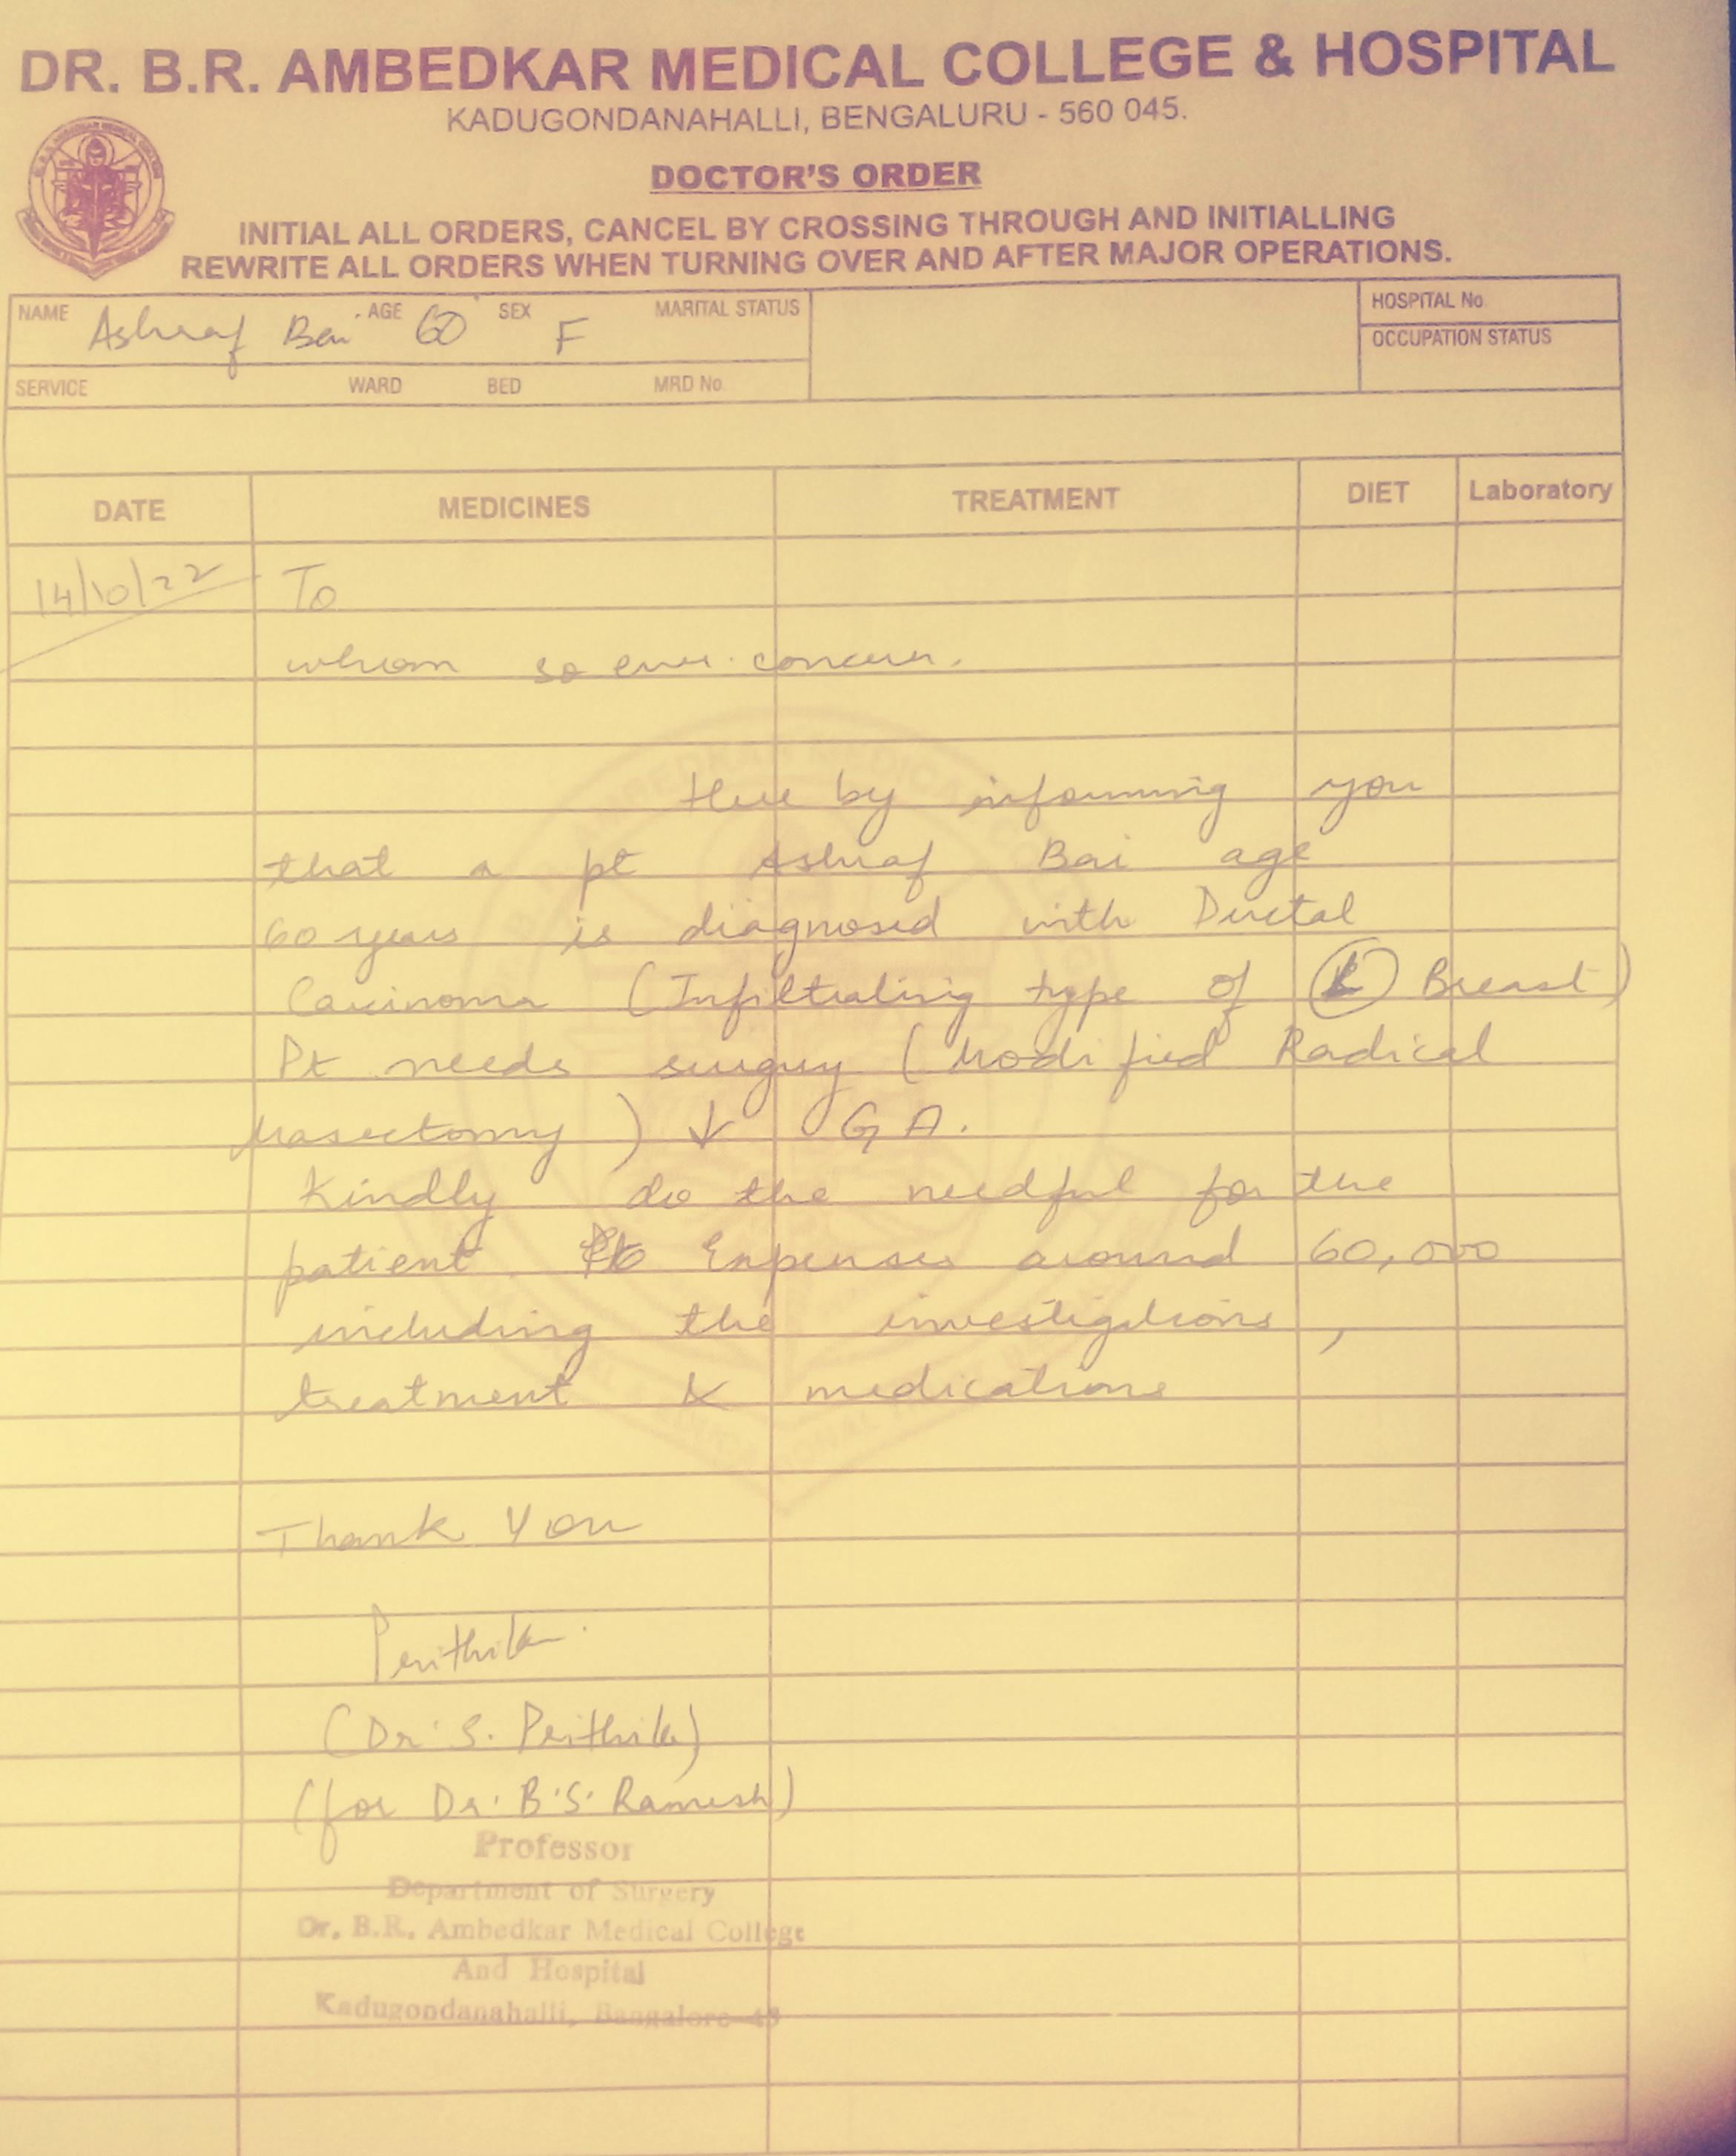 DR. B.R. AMBEDKAR MEDICAL COLLEGE & HOSPITAL
KADUGONDANAHALLI, BENGALURU - 560 045.
DOCTOR'S ORDER
INITIAL ALL ORDERS, CANCEL BY CROSSING THROUGH AND INITIALLING
REWRITE ALL ORDERS WHEN TURNING OVER AND AFTER MAJOR OPERATIONS.
NAME Ashraf Bai AGE 60 SEX F MARITAL STATUS
HOSPITAL No.
OCCUPATION STATUS
SERVICE WARD BED MRD No.
DATE MEDICINES TREATMENT DIET Laboratory
14/10/22 To
whom so ever concern.
Here by informing you
that a pt Ashraf Bai age
60 years is diagnosed with Ductal
Carcinoma (Infiltrating type of L Breast)
Pt needs surgery (Modified Radical
Masectomy) ↓ GA.
Kindly do the needful for the
patient. Expenses around 60,000
including the investigations,
treatment & medications
Thank You
Prithika
(Dr. S. Prithika)
(for Dr. B.S. Ramesh)
Professor
Department of Surgery
Dr. B.R. Ambedkar Medical College
And Hospital
Kadugondanahalli, Bangalore-45